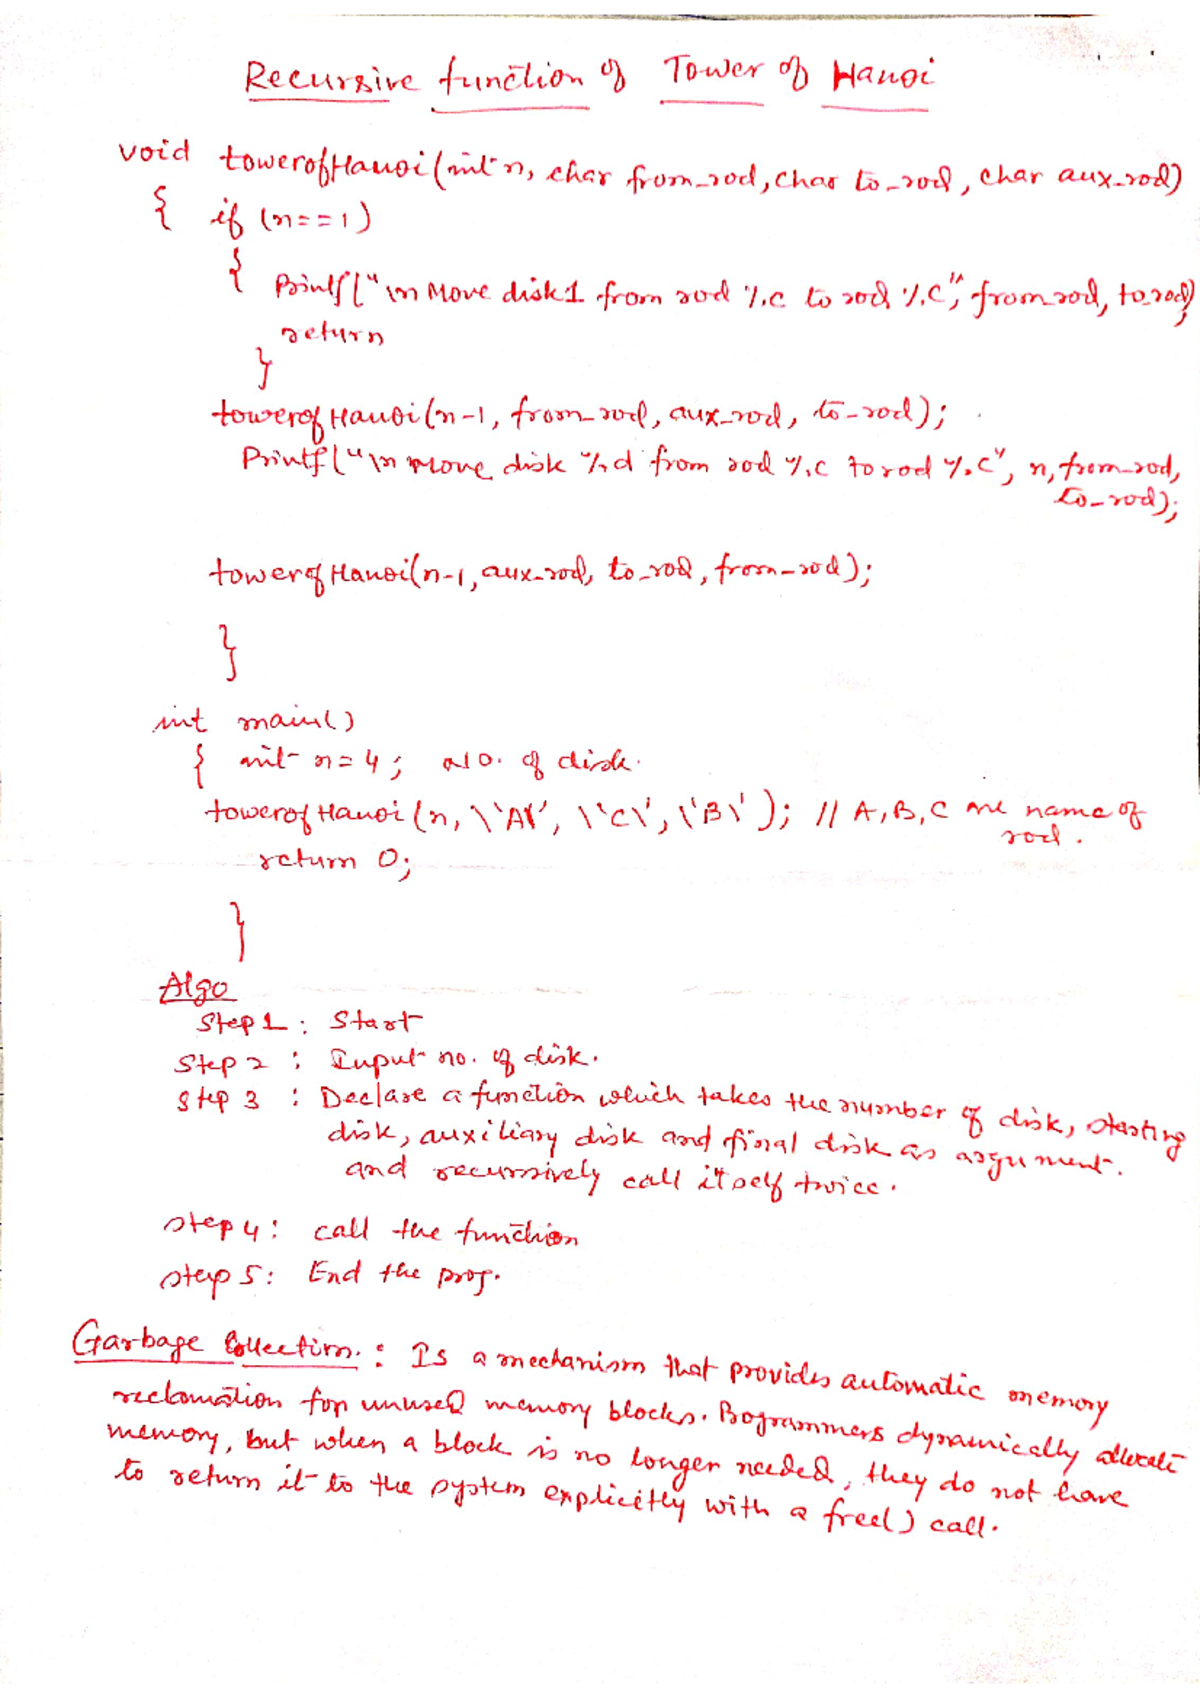 Recursive function of Tower of Hanoi
void towerofHanoi(int n, char from_rod, char to_rod, char aux_rod)
{ if (n==1)
{ Printf("\n Move disk 1 from rod %c to rod %c", from_rod, to_rod);
return
}
towerofHanoi(n-1, from_rod, aux_rod, to_rod);
Printf("\n Move disk %d from rod %c to rod %c", n, from_rod,
to_rod);
towerofHanoi(n-1, aux_rod, to_rod, from_rod);
}
int main()
{ int n=4; No. of disk.
towerofHanoi(n, \'A\', \'C\', \'B\'); // A, B, C are name of
rod.
return 0;
}
Algo
Step 1 : Start
Step 2 : Input no. of disk.
Step 3 : Declare a function which takes the number of disk, starting
disk, auxiliary disk and final disk as argument.
and recurssively call itself twice.
Step 4: call the function
Step 5: End the prog.
Garbage Collection. : Is a mechanism that provides automatic memory
reclamation for unused memory blocks. Programmers dynamically allocate
memory, but when a block is no longer needed, they do not have
to return it to the system explicitly with a free() call.